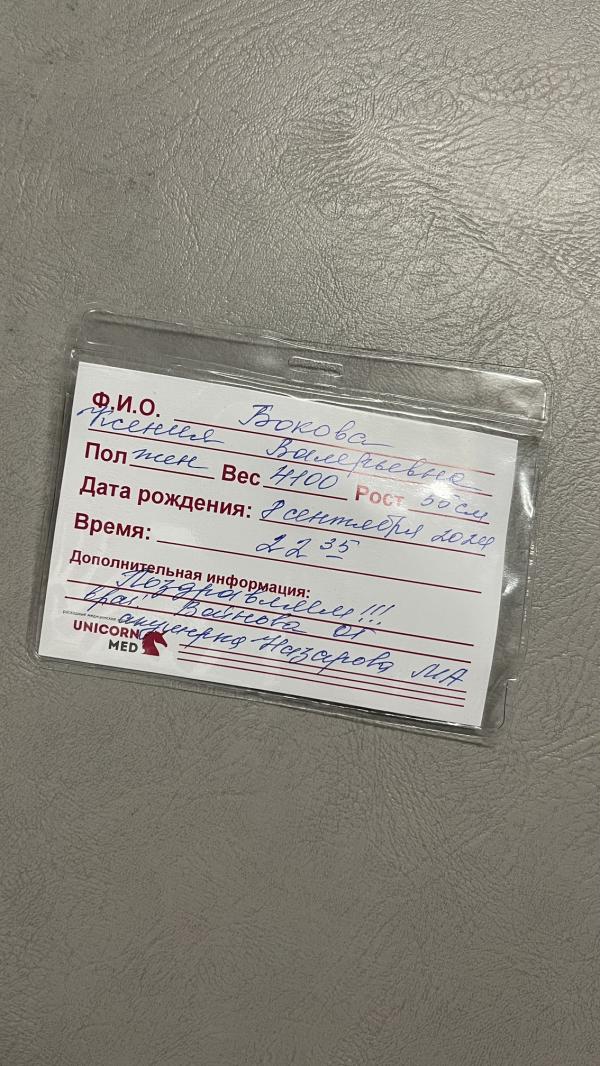 Ф.И.О. Бокова
Ксения Валерьевна
Пол жен Вес 4100 Рост 56 см
Дата рождения: 8 сентября 2024
Время: 22 35
Дополнительная информация:
Поздравляем!!!
врач: Войнова ОГ
акушерка Назарова МА
UNICORN
MED